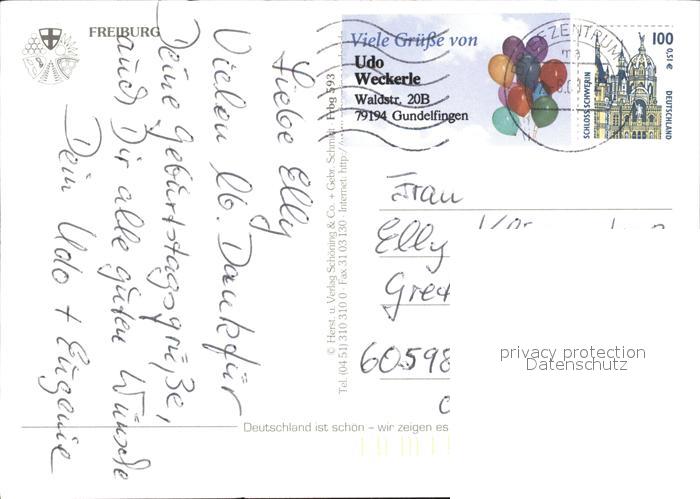 FREIBURG
Liebe Elly
Vielen lb. Dank für
Deine Geburtstagsgrüße,
auch Dir alle guten Wünsche
Dein Udo + Eugenie
© Herst. u. Verlag Schöning & Co. + Gebr. Schmidt · Frbg 593
Tel. (04 51) 310 310 0 · Fax 31 03 130 · Internet: http://
Viele Grüße von
Udo
Weckerle
Waldstr. 20B
79194 Gundelfingen
100
0,51€
SCHLOSS SCHWERIN
DEUTSCHLAND
Frau
Elly
60598
Deutschland ist schön – wir zeigen es
privacy protection
Datenschutz